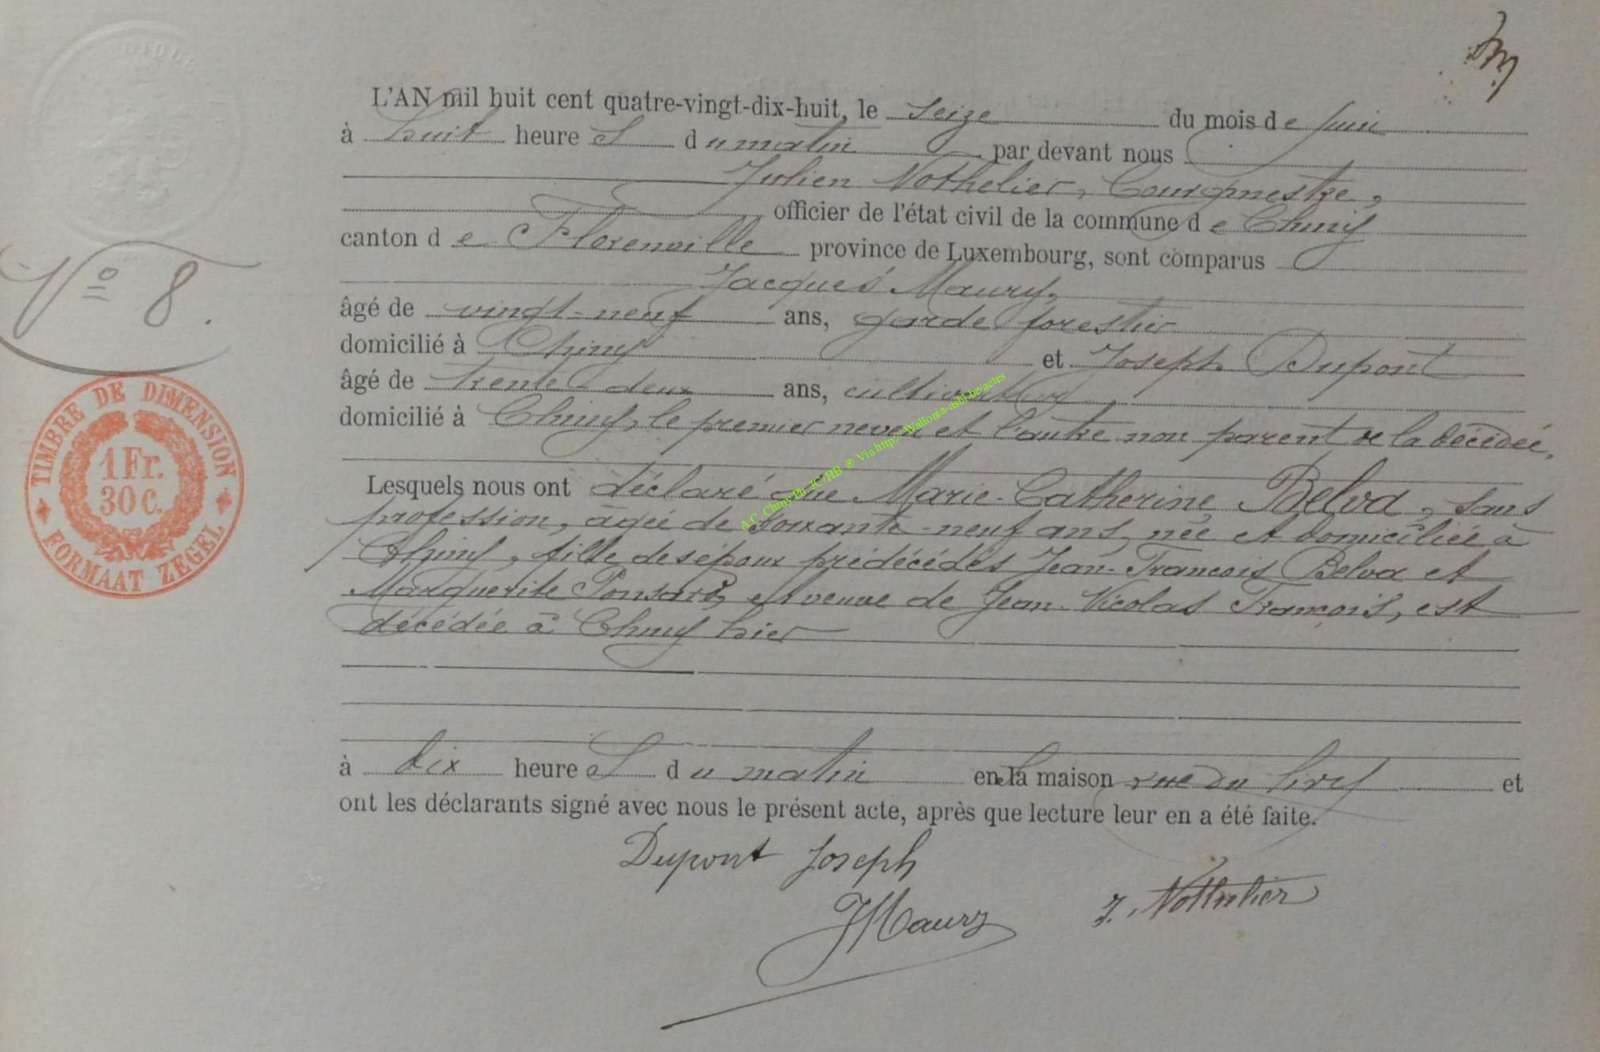 L'AN mil huit cent quatre-vingt-dix-huit, le seize du mois de juin
à huit heures du matin par devant nous
Julien Nothelier, Bourgmestre,
officier de l'état civil de la commune de Chiny
canton de Florenville province de Luxembourg, sont comparus
Jacques Maury,
N° 8.
âgé de vingt-neuf ans, garde forestier
domicilié à Chiny et Joseph Dupont
âgé de trente-deux ans, cultivateur
domicilié à Chiny, le premier neveu et l'autre non parent de la décédée.
TIMBRE DE DIMENSION
1 Fr.
30 C.
FORMAAT ZEGEL
Lesquels nous ont déclaré que Marie-Catherine Belva, sans
profession, âgée de soixante-neuf ans, née et domiciliée à
Chiny, fille des époux prédécédés Jean-François Belva et
Marguerite Ponsard, et veuve de Jean-Nicolas François, est
décédée à Chiny hier
à dix heures du matin en la maison rue du et
ont les déclarants signé avec nous le présent acte, après que lecture leur en a été faite.
Dupont Joseph
JMaury
J. Nothelier